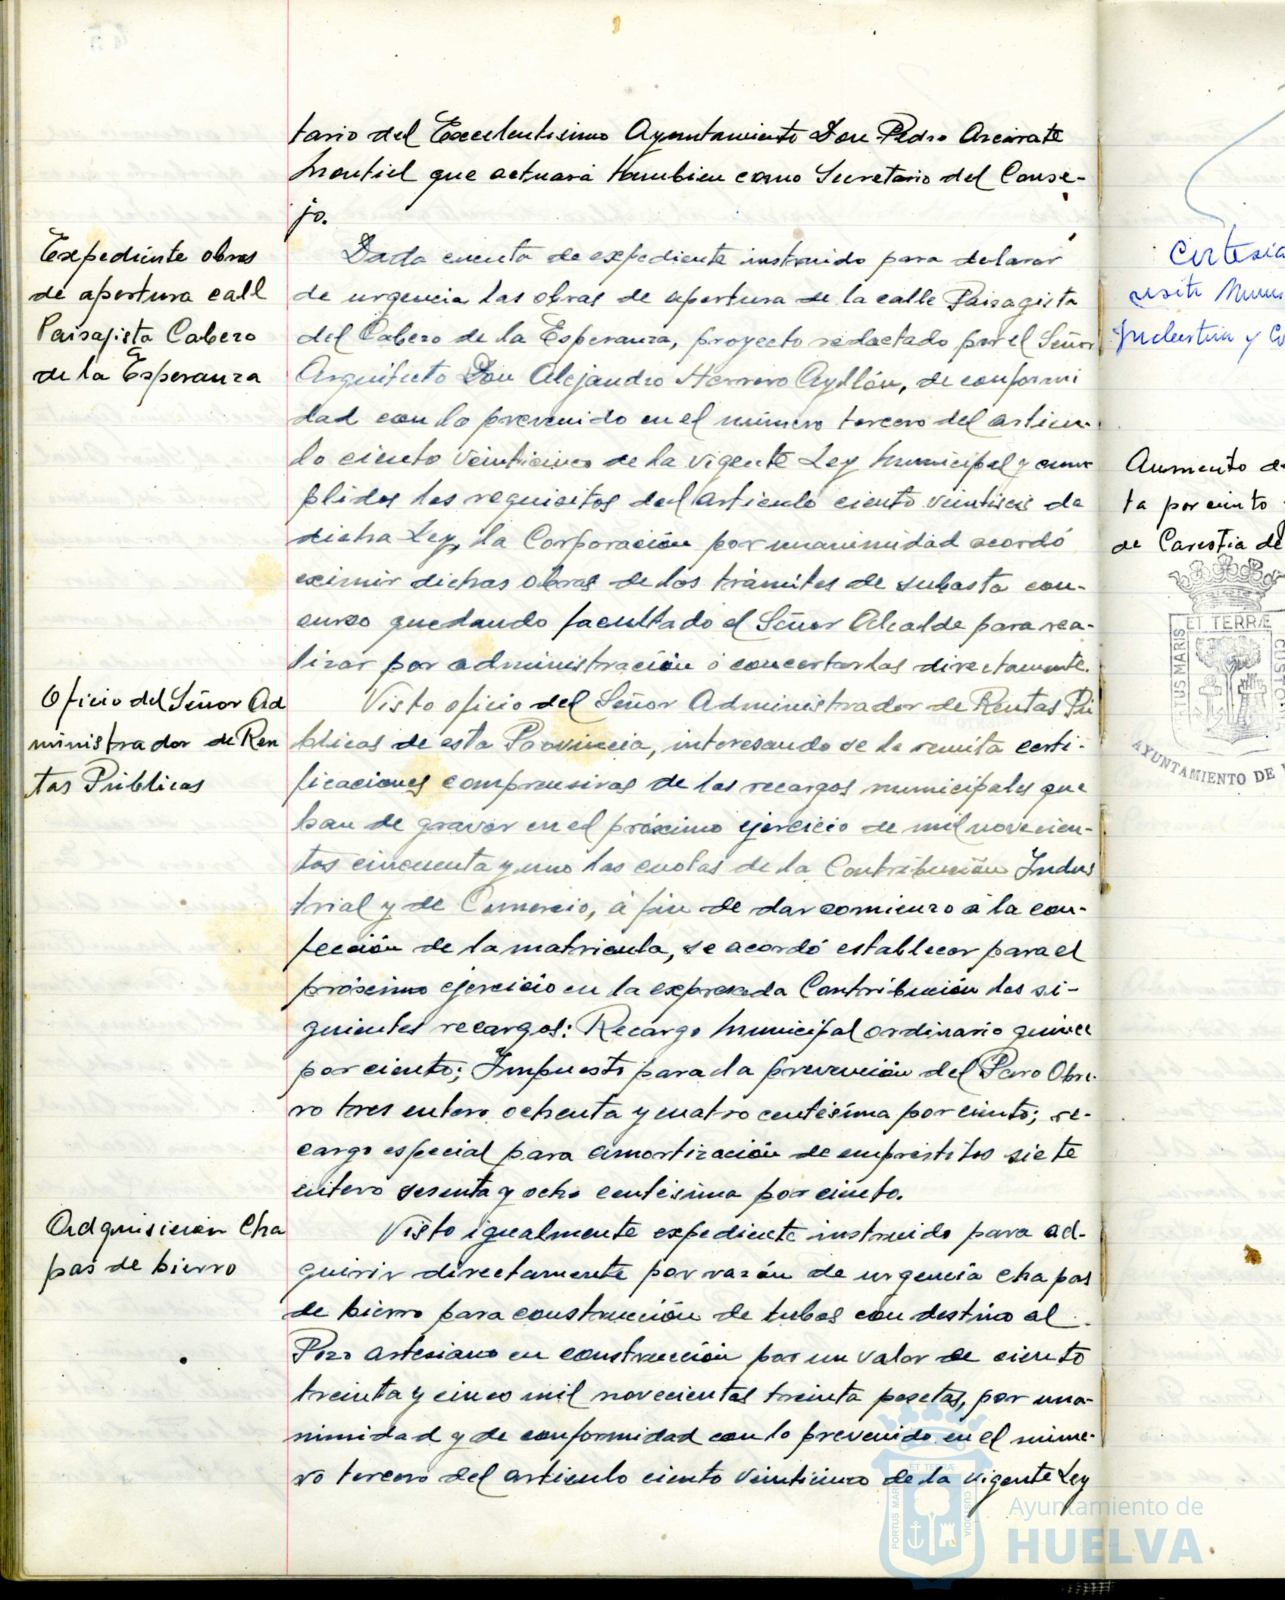 tario del Excelentisimo Ayuntamiento Don Pedro Azcárate
Montiel que actuará tambien como Secretario del Conse-
jo.
Expediente obras
de apertura call
Paisajista Cabezo
de la Esperanza
Dada cuenta de expediente instruido para declarar
de urgencia las obras de apertura de la calle Paisagista
del Cabezo de la Esperanza, proyecto redactado por el Señor
Arquitecto Don Alejandro Herrero Ayllón, de conformi
dad con lo prevenido en el número tercero del articu-
lo ciento veinticinco de la vigente Ley Municipal y cum
plidos los requisitos del articulo ciento veintiseis de
dicha Ley, la Corporación por unanimidad acordó
eximir dichas obras de los trámites de subasta con-
curso quedando facultado el Señor Alcalde para rea-
lizar por administración ó concertarlas directamente.
Oficio del Señor Ad
ministrador de Ren
tas Públicas
Visto oficio del Señor Administrador de Rentas Pú
blicas de esta Provincia, interesando se le remita certi-
ficaciones comprensivas de los recargos municipales que
han de gravar en el próximo ejercicio de mil novecien-
tos cincuenta y uno las cuotas de la Contribución Indus
trial y de Comercio, á fin de dar comienzo a la con-
fección de la matricula, se acordó establecer para el
próximo ejercicio en la expresada Contribución los si-
guientes recargos: Recargo Municipal ordinario quince
por ciento; Impuesto para la prevención del Paro Obre-
ro tres entero ochenta y cuatro centésima por ciento; re-
cargo especial para amortización de empréstitos siete
entero sesenta y ocho centésima por ciento.
Adquisición Cha
pas de hierro
Visto igualmente expediente instruido para ad-
quirir directamente por razón de urgencia chapas
de hierro para construcción de tubos con destino al
Pozo artesiano en construcción por un valor de ciento
treinta y cinco mil novecientas treinta pesetas, por una-
nimidad y de conformidad con lo prevenido en el núme-
ro tercero del articulo ciento veinticinco de la vigente Ley
Cortesia
visita
Industria y
Aumento de
ta por ciento
de Carestia de
ET TERRÆ
TUS MARIS
AYUNTAMIENTO DE
ET TERRÆ
PORTUS MARIS
CUSTODIA
Ayuntamiento de
HUELVA